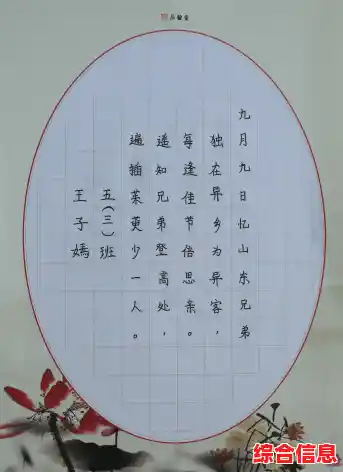 九月九日忆山东兄弟
独在异乡为异客，
每逢佳节倍思亲。
遥知兄弟登高处，
遍插茱萸少一人。
五（三）班
王子嫣
综合信息